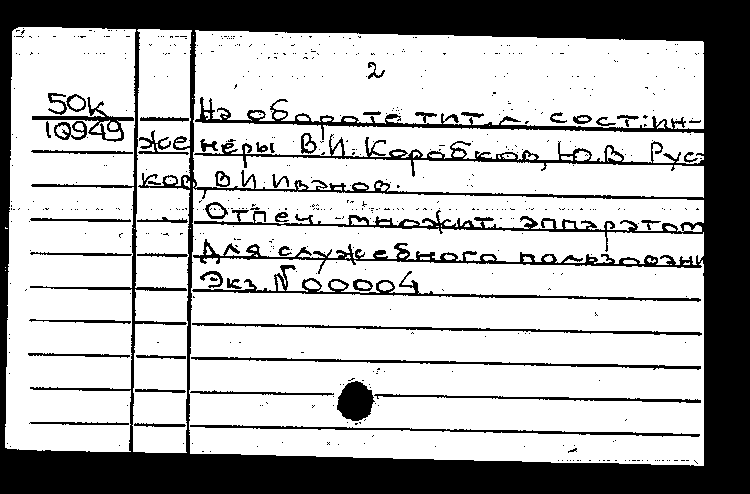 2
50к На обороте тит. л. сост.: ин-
10949 женеры В.И. Коробков, Ю.В. Рус-
ков, В.И. Иванов.
Отпеч. множит. аппаратом
Для служебного пользовани
Экз. № 00004.